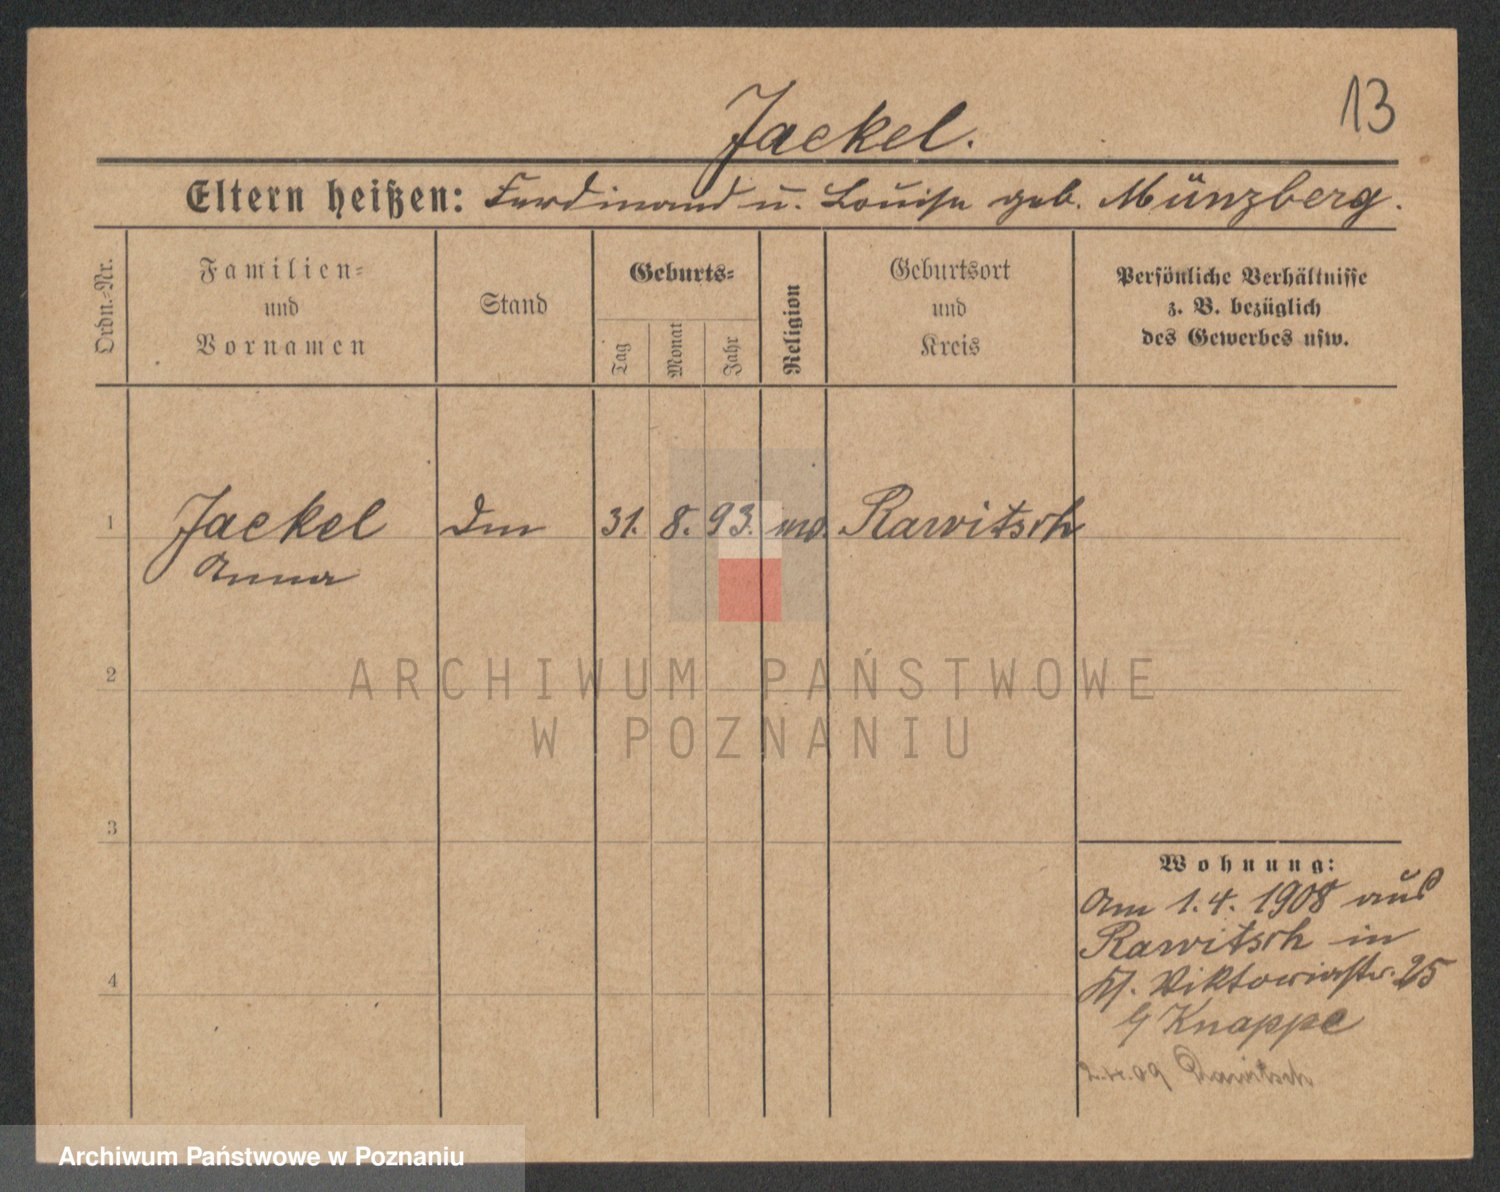 13
Jaekel.
Eltern heißen: Ferdinand u. Louise geb. Münzberg.
Ordn.-Nr.
Familien-
und
Vornamen
Stand
Geburts-
Tag
Monat
Jahr
Religion
Geburtsort
und
Kreis
Persönliche Verhältnisse
z. B. bezüglich
des Gewerbes usw.
1 Jaekel 31. 8. 93. Rawitsch
Anna
2
ARCHIWUM PAŃSTWOWE
W POZNANIU
3
Wohnung:
Am 1.4.1908 aus
Rawitsch in
Viktoriastr. 25
Knappe
2.4.09 Rawitsch
4
Archiwum Państwowe w Poznaniu